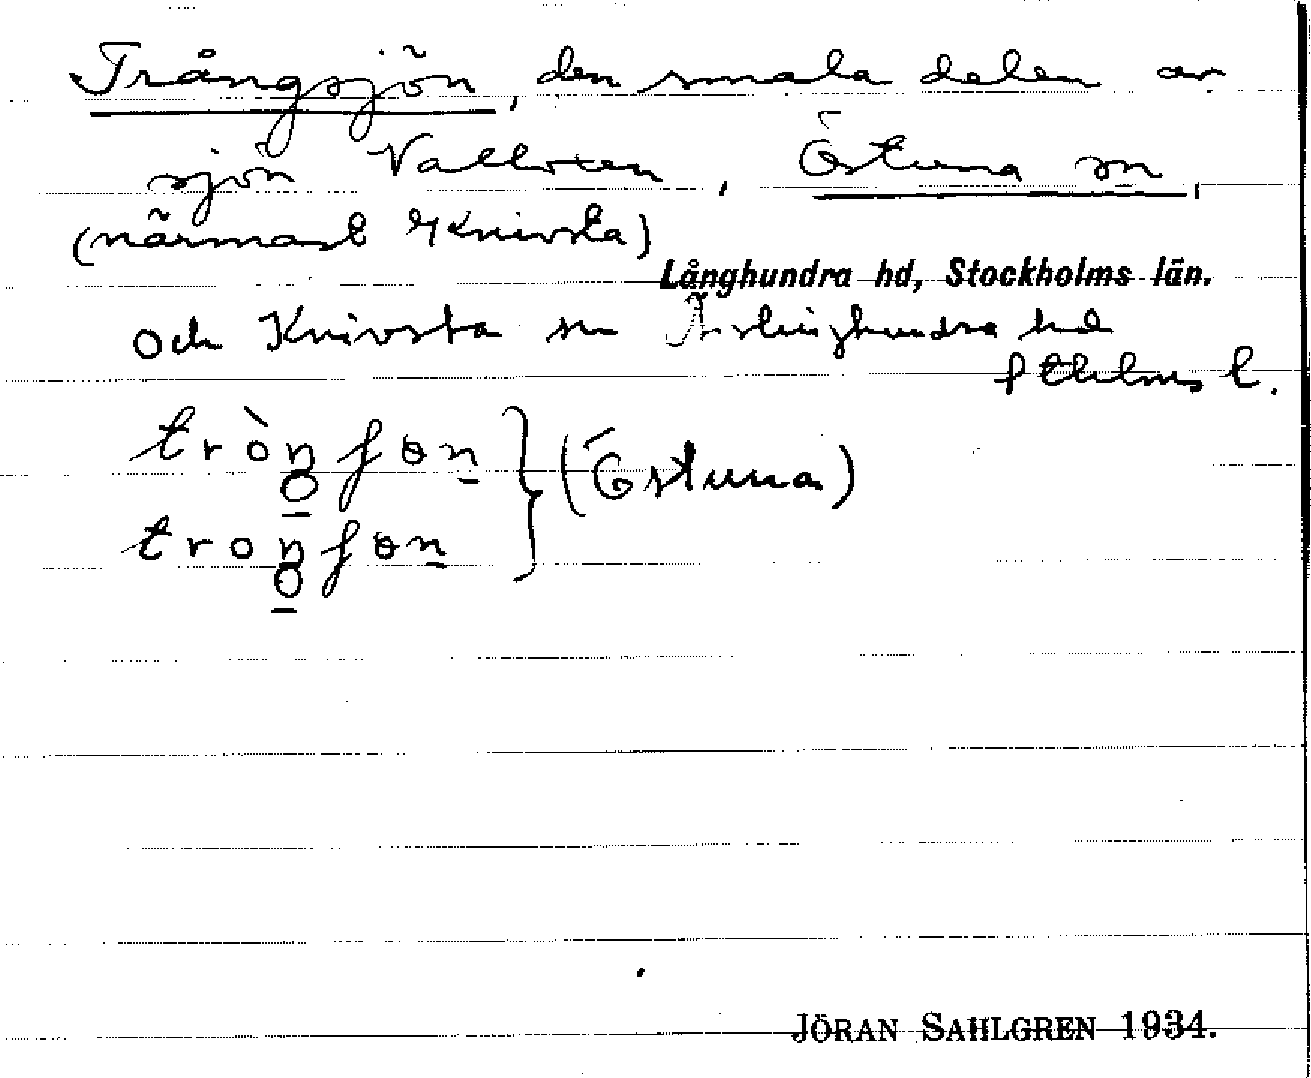 Trångsjön, den smala delen av
sjön Valloxen, Östuna sn,
(närmast Knivsta)
Långhundra hd, Stockholms län.
och Knivsta sn Ärlinghundra hd
Sthlms l.
(Östuna)
JÖRAN SAHLGREN 1934.